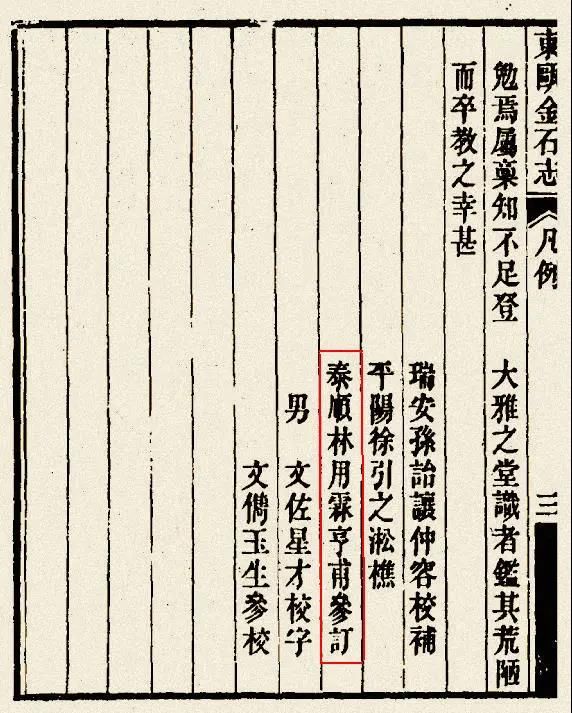 東甌金石志 凡例 三
勉焉屬稾知不足登 大雅之堂識者鑑其荒陋
而卒教之幸甚
瑞安孫詒讓仲容校補
平陽徐引之淞樵
泰順林用霖亨甫參訂
男 文佐星才校字
文儁玉生參校